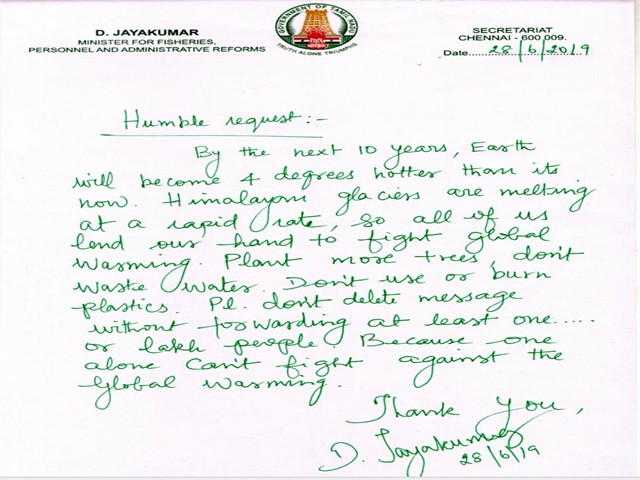 D. JAYAKUMAR
MINISTER FOR FISHERIES,
PERSONNEL AND ADMINISTRATIVE REFORMS
GOVERNMENT OF TAMIL NADU
TRUTH ALONE TRIUMPHS
SECRETARIAT
CHENNAI - 600 009.
Date....28/6/2019
Humble request:-
By the next 10 years, Earth
will become 4 degrees hotter than its
now. Himalayan glaciers are melting
at a rapid rate, so all of us
lend our hand to fight global
warming. Plant more trees, don't
waste water. Don't use or burn
plastics. Pl. don't delete message
without forwarding at least one.....
or lakh people. Because one
alone can't fight against the
Global Warming.
Thank You,
D. Jayakumar
28/6/19